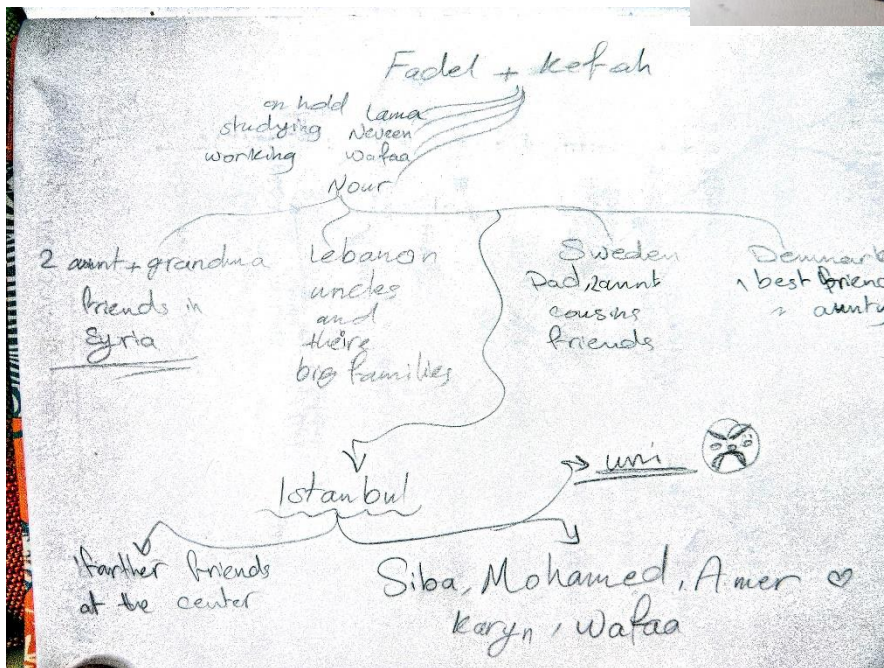 Fadel + Kefah
on hold Lama
studying Neveen
working Wafaa
Nour
2 aunt + grandma
friends in
Syria
Lebanon
uncles
and
theire
big families
Sweden
Dad, 2 aunt
cousins
friends
Denmark
1 best friend
aunty
Istanbul
uni
farther friends
at the center
Siba, Mohamed, Amer ♡
Karyn, Wafaa